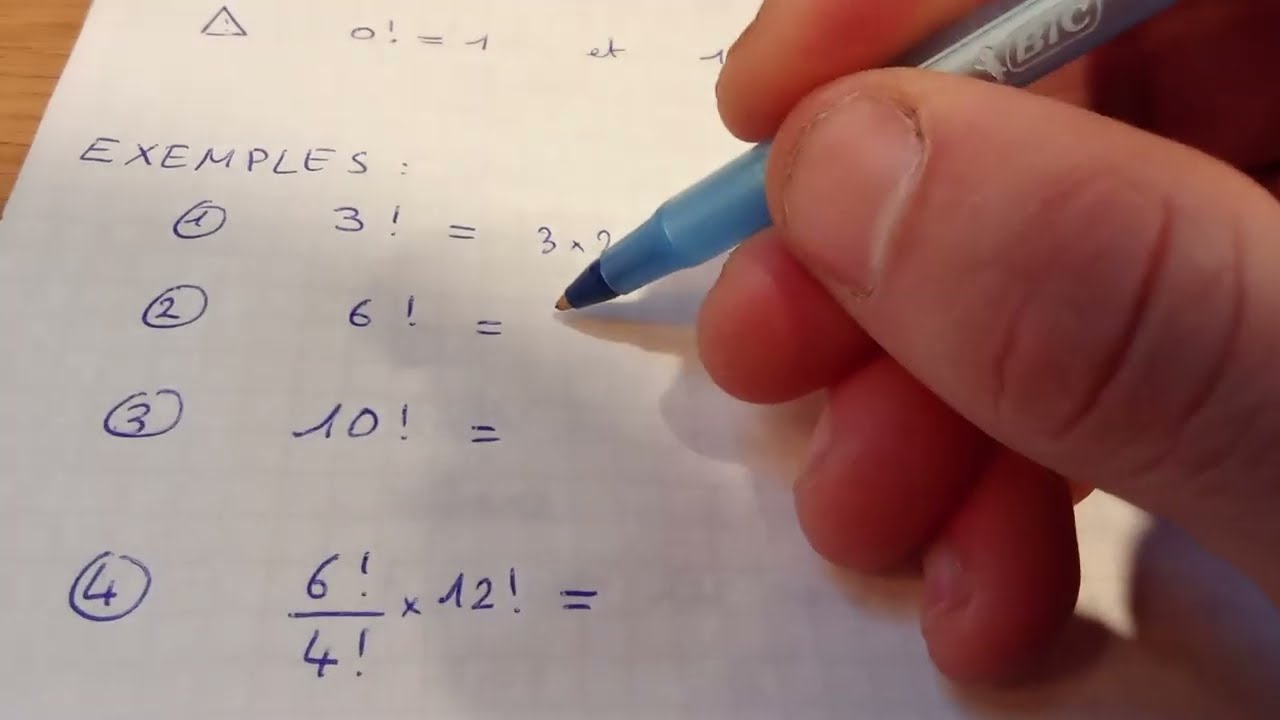 0! = 1 et 1
EXEMPLES :
① 3! = 3 × 2
② 6! =
③ 10! =
④ 6!/4! × 12! =
BIC